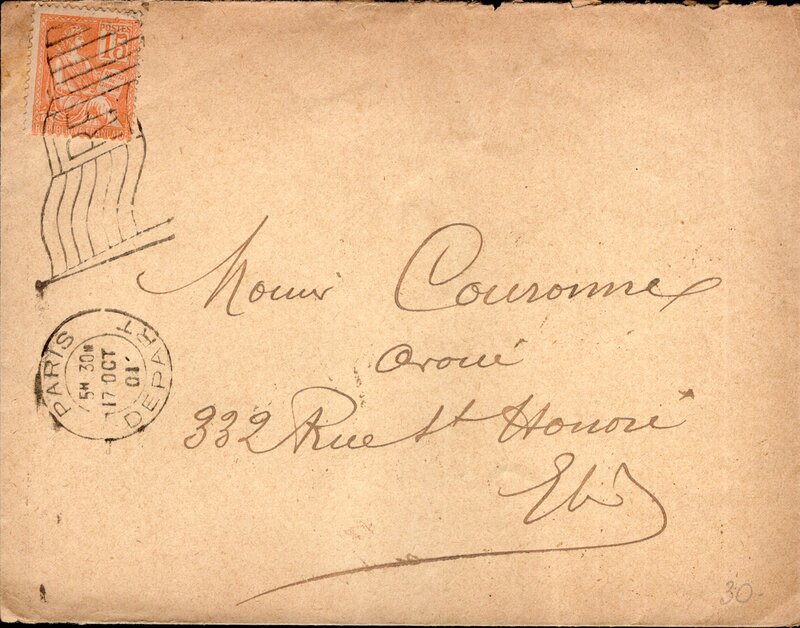 POSTES
15
REPUBLIQUE
Couronne
avoué
332 Rue St Honoré
PARIS
DEPART
5H 30M
17 OCT
01
30-